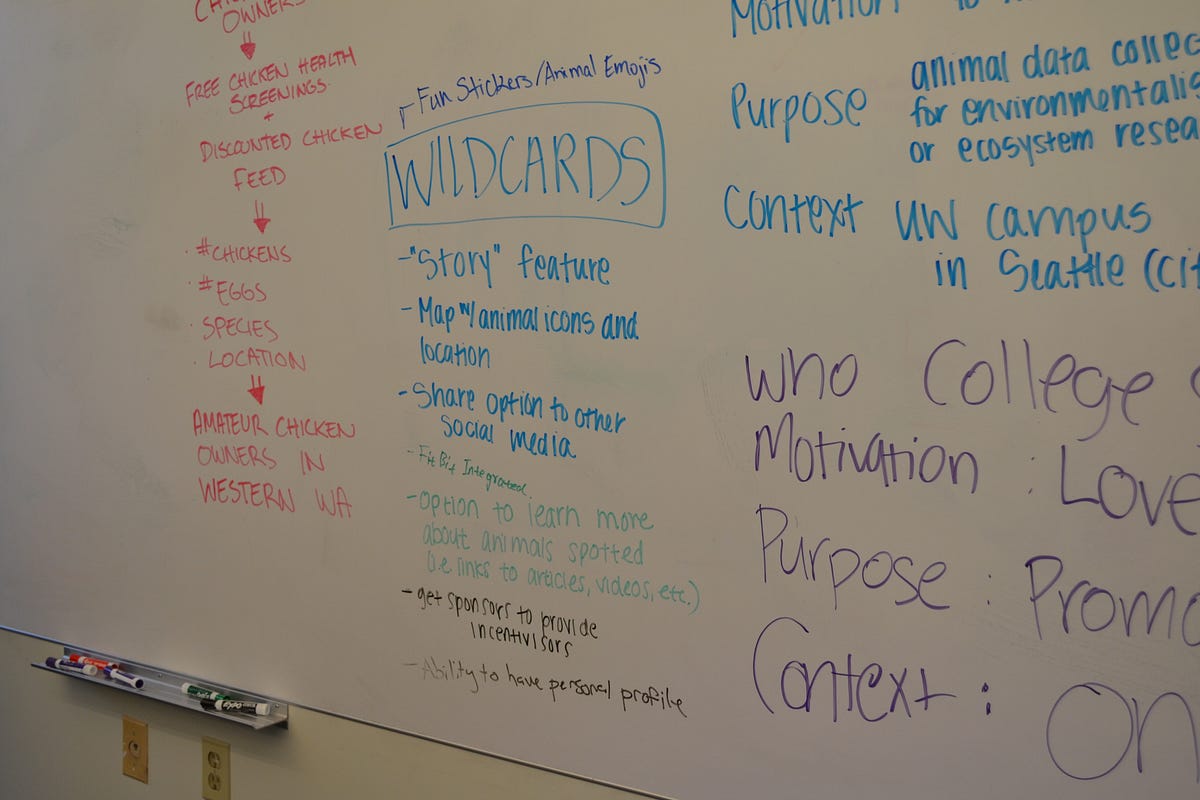 OWNERS
FREE CHICKEN HEALTH
SCREENINGS.
+
DISCOUNTED CHICKEN
FEED
· #CHICKENS
· #EGGS
· SPECIES
· LOCATION
AMATEUR CHICKEN
OWNERS IN
WESTERN WA
Fun Stickers/Animal Emojis
WILDCARDS
-"Story" feature
- Map w/animal icons and
location
- Share option to other
social media
- FitBit Integrated.
- option to learn more
about animals spotted
(i.e. links to articles, videos, etc.)
- get sponsors to provide
incentivisors
- Ability to have personal profile
Motivation
Purpose animal data collec
for environmentalis
or ecosystem resea
Context UW campus
in Seattle (cit
Who College
Motivation : Love
Purpose : Promo
Context : On
EXPO